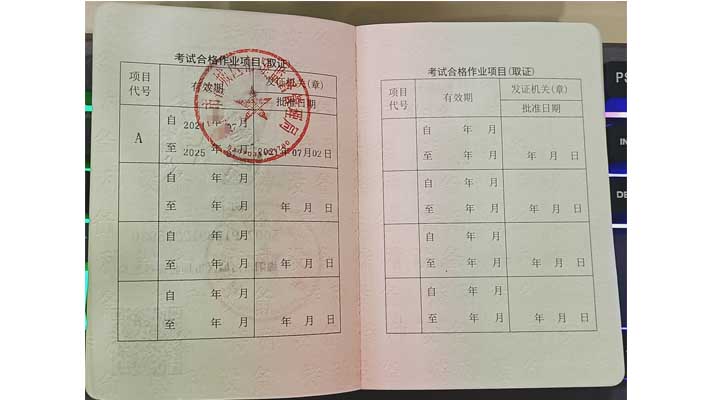 考试合格作业项目(取证)
项目
代号
有效期
发证机关(章)
批准日期
A
自 2021 年 07 月
至 2025 年 月
2021 年 07 月 02 日
自 年 月
至 年 月
年 月 日
自 年 月
至 年 月
年 月 日
自 年 月
至 年 月
年 月 日
考试合格作业项目(取证)
项目
代号
有效期
发证机关(章)
批准日期
自 年 月
至 年 月
年 月 日
自 年 月
至 年 月
年 月 日
自 年 月
至 年 月
年 月 日
自 年 月
至 年 月
年 月 日
PS
IN
DE